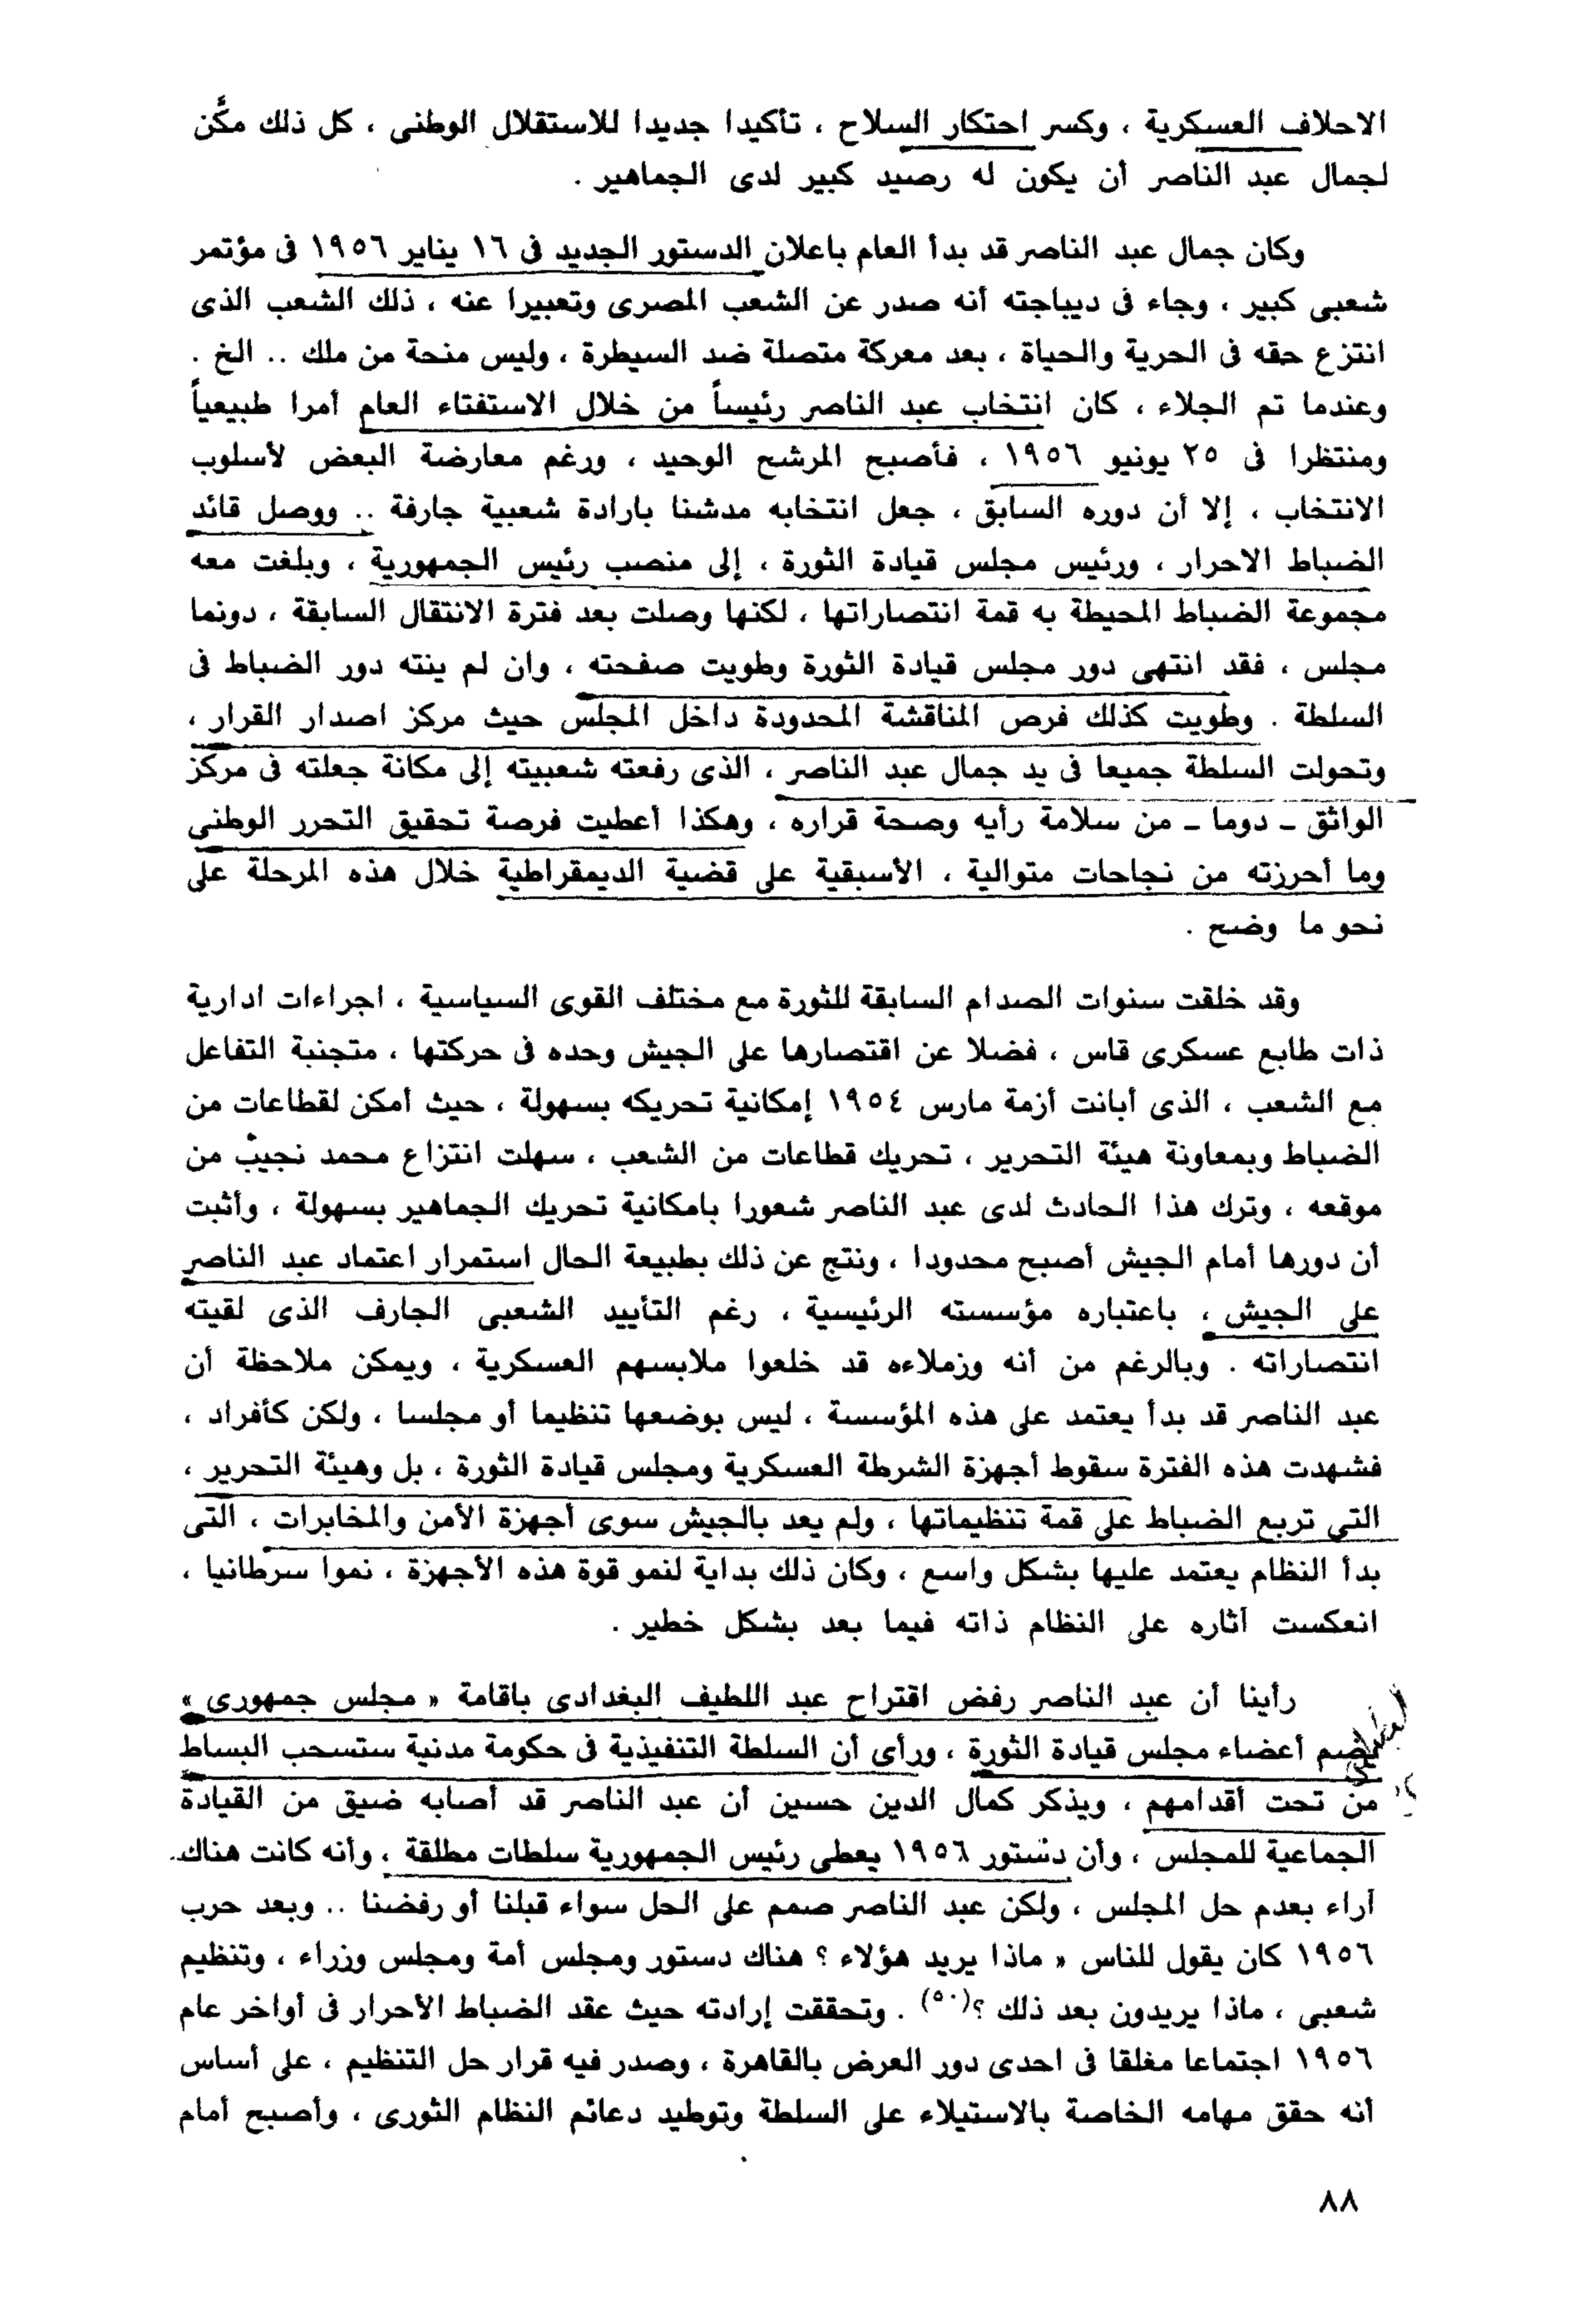 الاحلاف العسكرية ، وكسر احتكار السلاح ، تأكيدا جديدا للاستقلال الوطنى ، كل ذلك مكَّن
لجمال عبد الناصر أن يكون له رصيد كبير لدى الجماهير .
وكان جمال عبد الناصر قد بدأ العام باعلان الدستور الجديد فى ١٦ يناير ١٩٥٦ فى مؤتمر
شعبى كبير ، وجاء فى ديباجته أنه صدر عن الشعب المصرى وتعبيرا عنه ، ذلك الشعب الذى
انتزع حقه فى الحرية والحياة ، بعد معركة متصلة ضد السيطرة ، وليس منحة من ملك .. الخ .
وعندما تم الجلاء ، كان انتخاب عبد الناصر رئيساً من خلال الاستفتاء العام أمرا طبيعياً
ومنتظرا فى ٢٥ يونيو ١٩٥٦ ، فأصبح المرشح الوحيد ، ورغم معارضة البعض لأسلوب
الانتخاب ، إلا أن دوره السابق ، جعل انتخابه مدشنا بارادة شعبية جارفة .. ووصل قائد
الضباط الاحرار ، ورئيس مجلس قيادة الثورة ، إلى منصب رئيس الجمهورية ، وبلغت معه
مجموعة الضباط المحيطة به قمة انتصاراتها ، لكنها وصلت بعد فترة الانتقال السابقة ، دونما
مجلس ، فقد انتهى دور مجلس قيادة الثورة وطويت صفحته ، وان لم ينته دور الضباط فى
السلطة . وطويت كذلك فرص المناقشة المحدودة داخل المجلس حيث مركز اصدار القرار ،
وتحولت السلطة جميعا فى يد جمال عبد الناصر ، الذى رفعته شعبيته إلى مكانة جعلته فى مركز
الواثق ـ دوما ـ من سلامة رأيه وصحة قراره ، وهكذا أعطيت فرصة تحقيق التحرر الوطني
وما أحرزته من نجاحات متوالية ، الأسبقية على قضية الديمقراطية خلال هذه المرحلة على
نحو ما وضح .
وقد خلقت سنوات الصدام السابقة للثورة مع مختلف القوى السياسية ، اجراءات ادارية
ذات طابع عسكرى قاس ، فضلا عن اقتصارها على الجيش وحده فى حركتها ، متجنبة التفاعل
مع الشعب ، الذى أبانت أزمة مارس ١٩٥٤ إمكانية تحريكه بسهولة ، حيث أمكن لقطاعات من
الضباط وبمعاونة هيئة التحرير ، تحريك قطاعات من الشعب ، سهلت انتزاع محمد نجيب من
موقعه ، وترك هذا الحادث لدى عبد الناصر شعورا بامكانية تحريك الجماهير بسهولة ، وأثبت
أن دورها أمام الجيش أصبح محدودا ، ونتج عن ذلك بطبيعة الحال استمرار اعتماد عبد الناصر
على الجيش ، باعتباره مؤسسته الرئيسية ، رغم التأييد الشعبى الجارف الذى لقيته
انتصاراته . وبالرغم من أنه وزملاءه قد خلعوا ملابسهم العسكرية ، ويمكن ملاحظة أن
عبد الناصر قد بدأ يعتمد على هذه المؤسسة ، ليس بوضعها تنظيما أو مجلسا ، ولكن كأفراد ،
فشهدت هذه الفترة سقوط أجهزة الشرطة العسكرية ومجلس قيادة الثورة ، بل وهيئة التحرير ،
التى تربع الضباط على قمة تنظيماتها ، ولم يعد بالجيش سوى أجهزة الأمن والمخابرات ، التى
بدأ النظام يعتمد عليها بشكل واسع ، وكان ذلك بداية لنمو قوة هذه الأجهزة ، نموا سرطانيا ،
انعكست آثاره على النظام ذاته فيما بعد بشكل خطير .
رأينا أن عبد الناصر رفض اقتراح عبد اللطيف البغدادى باقامة « مجلس جمهورى »
يضم أعضاء مجلس قيادة الثورة ، ورأى أن السلطة التنفيذية فى حكومة مدنية ستسحب البساط
من تحت أقدامهم ، ويذكر كمال الدين حسين أن عبد الناصر قد أصابه ضيق من القيادة
الجماعية للمجلس ، وأن دستور ١٩٥٦ يعطى رئيس الجمهورية سلطات مطلقة ، وأنه كانت هناك
آراء بعدم حل المجلس ، ولكن عبد الناصر صمم على الحل سواء قبلنا أو رفضنا .. وبعد حرب
١٩٥٦ كان يقول للناس « ماذا يريد هؤلاء ؟ هناك دستور ومجلس أمة ومجلس وزراء ، وتنظيم
شعبى ، ماذا يريدون بعد ذلك ؟(٥٠) . وتحققت إرادته حيث عقد الضباط الأحرار فى أواخر عام
١٩٥٦ اجتماعا مغلقا فى احدى دور العرض بالقاهرة ، وصدر فيه قرار حل التنظيم ، على أساس
أنه حقق مهامه الخاصة بالاستيلاء على السلطة وتوطيد دعائم النظام الثورى ، وأصبح أمام
٨٨